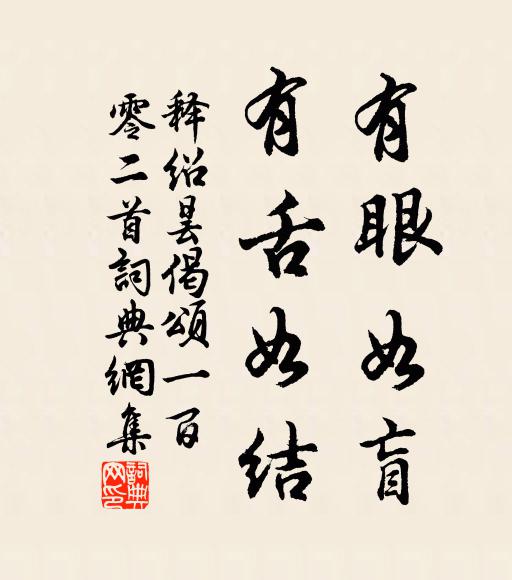 有眼如盲
有舌如结
释绍昙偈颂一百
零二首词典網集
詞典网印